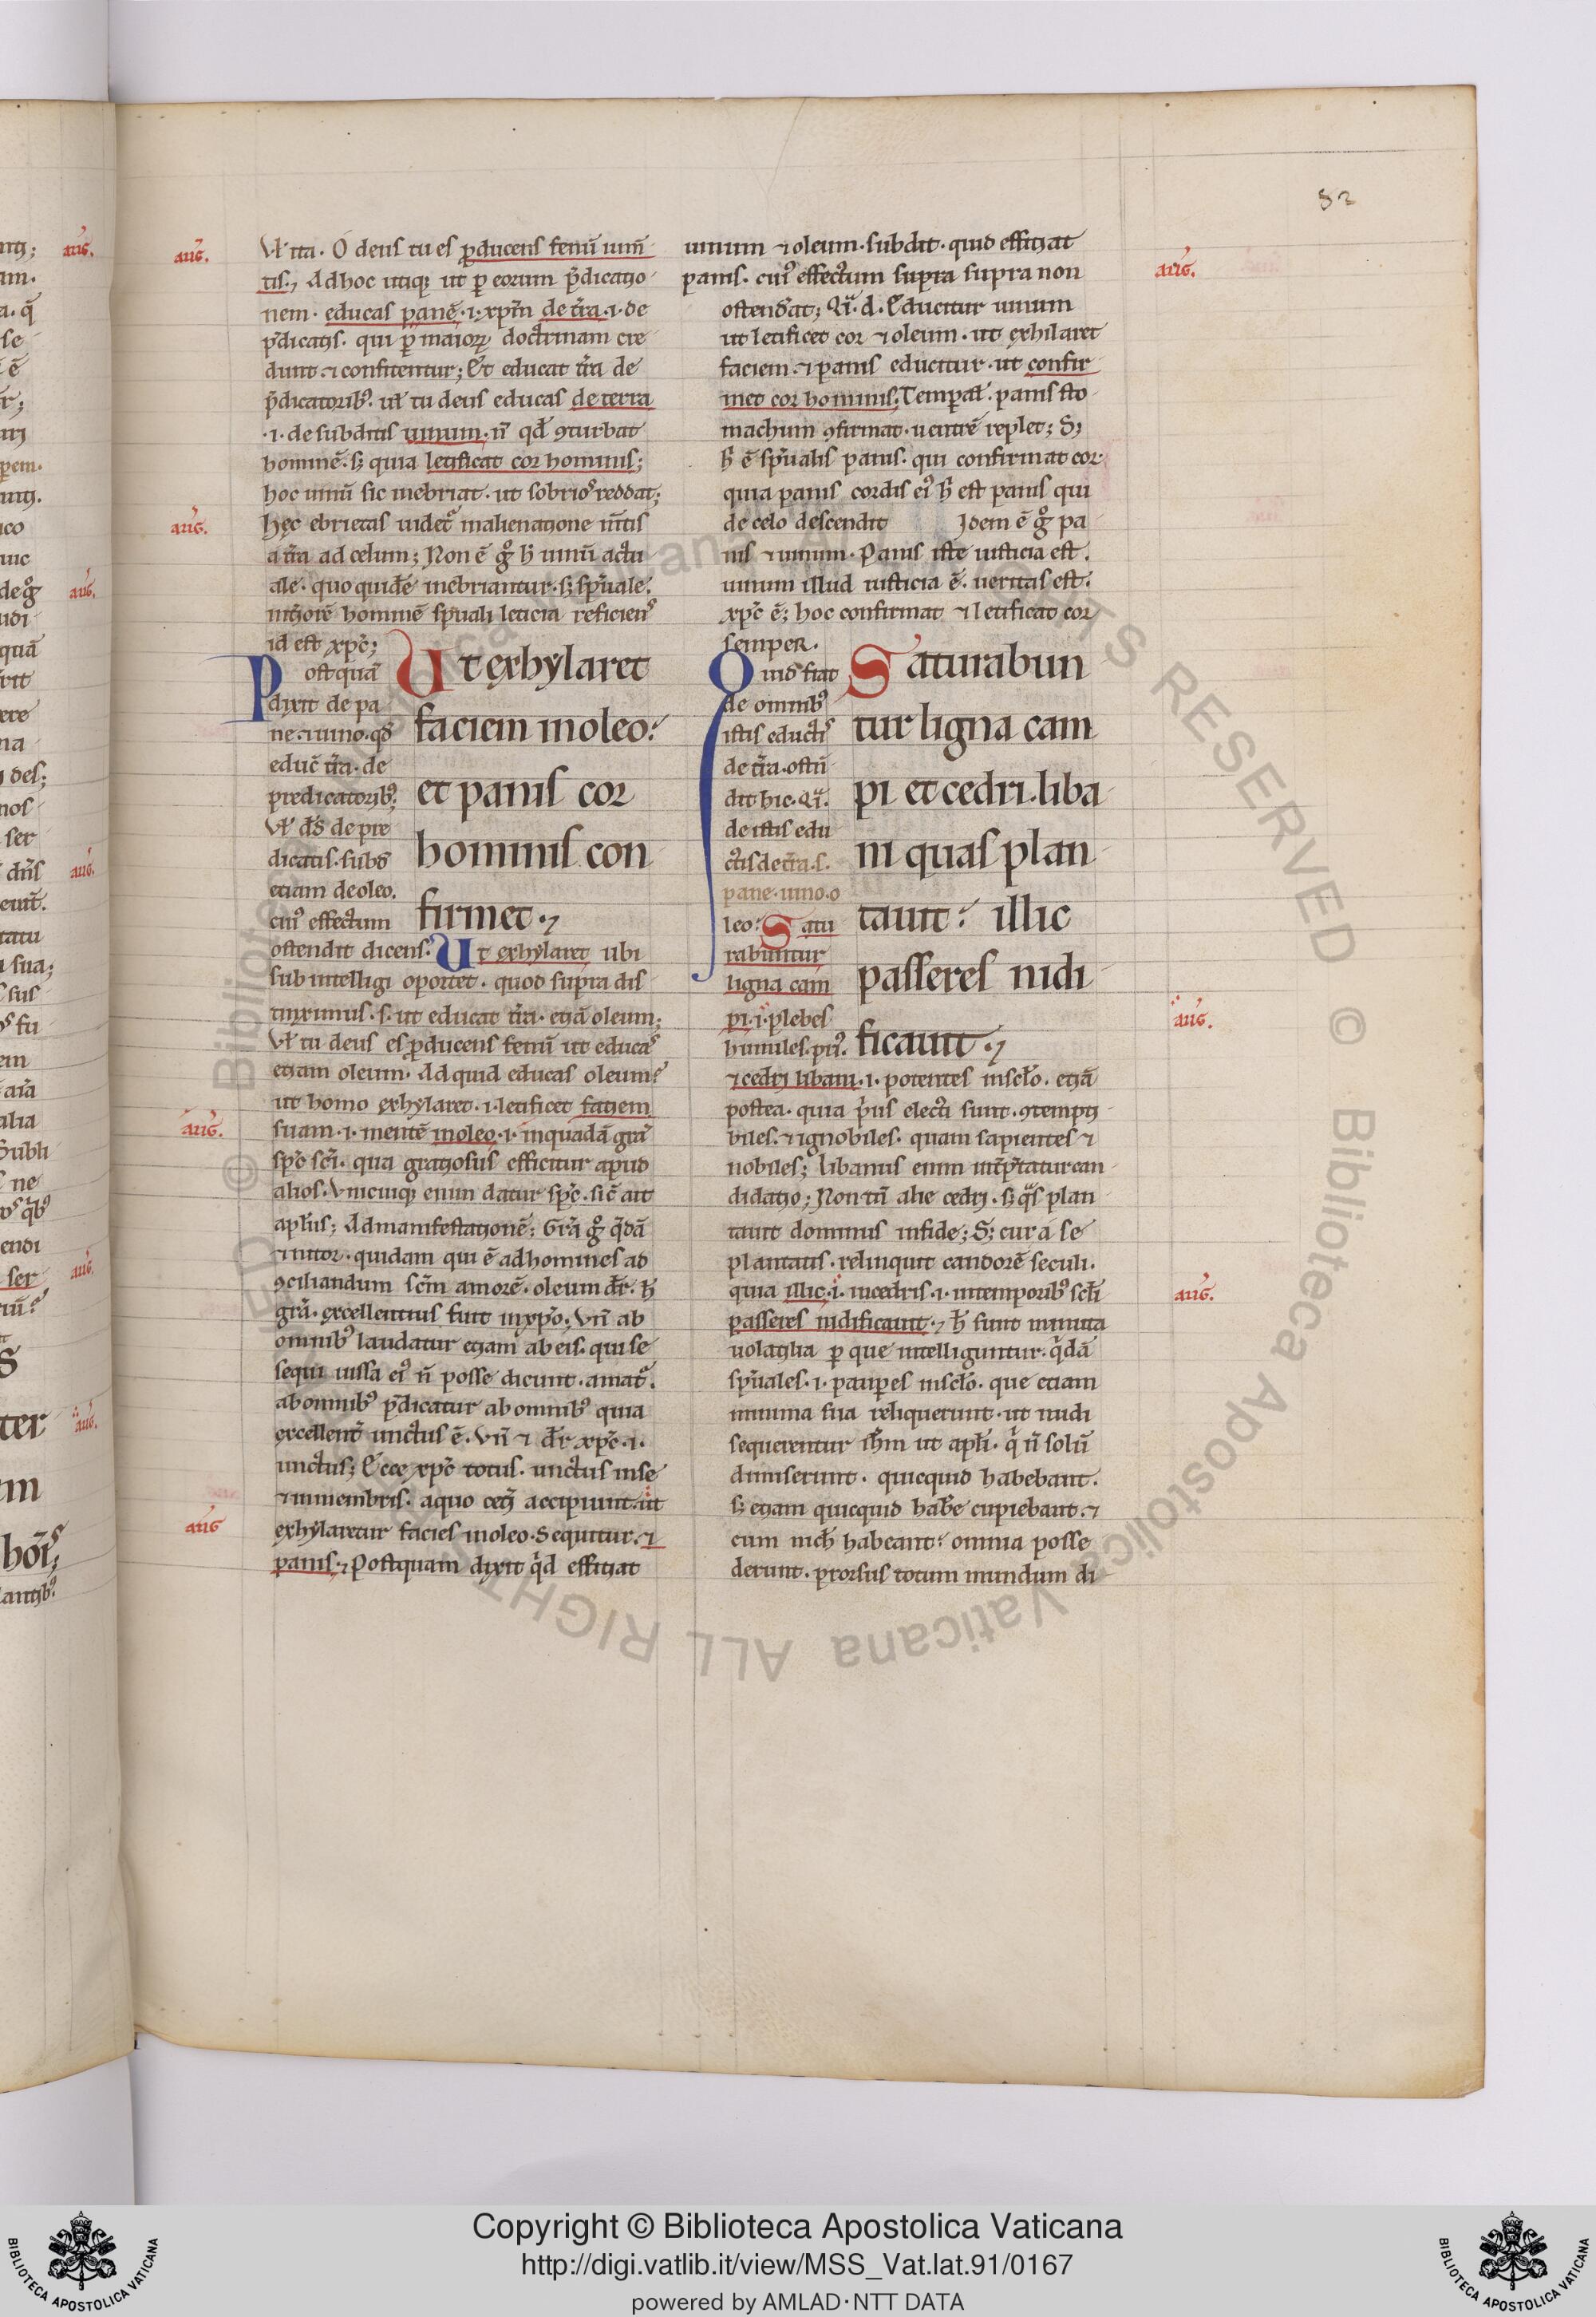 82
aug̃.
Vł ita. O deus tu es ꝓducens fenũ iuḿ
tis., Ad hoc utiq; ut ꝑ eorum p̃dicatio
nem. educas panẽ .i. xp̃m de t̃ra .i. de
p̃dicatis. qui ꝑ maioꝝ doctrinam cre
dunt ⁊ confitentur; Et educat t̃ra de
p̃dicatorib⁹. uł tu deus educas de terra
.i. de subditis uinum. ñ qd̃ ꝯturbat
hominẽ. s; quia letificat cor hominis;
hoc uinũ sic inebriat. ut sobrios reddat;
aug̃.
hęc ebrietas uidet᷑ in alienatione m̃tis
a t̃ra ad celum; Non ẽ g̊ h̃ uinũ actu
ale. quo quidẽ inebriantur. s; sp̃uale.
int̃iorẽ hominẽ sp̃uali leticia reficiens
id est xp̃c;
Postquã
dixit de pa
ne ⁊ uino. qd̃
educ̃ t̃ra. de
predicatorib⁹.
Vł d̃s de pre
dicatis. subd̃
etiam de oleo.
cui⁹ effectum
ostendit dicens. Ut exhylaret ubi
Ut exhylaret
faciem in oleo.
et panis cor
hominis con
firmet.
sub intelligi oportet. quod supra dis
tinximus. s. ut educat t̃ra. etiã oleum;
Vł tu deus es ꝓducens fenũ ut educas
etiam oleum. Ad quid educas oleum?
ut homo exhylaret .i. letificet faciem
aug̃.
suam .i. mentẽ in oleo .i. in quadã gr̃a
sp̃c sc̃i. qua gratiosus efficitur apud
alios. Vnicuiq; enim datur sp̃c. sic̃ ait
apłus; Ad manifestationẽ; Gr̃a g̊ q̃dã
⁊ nitor. quidam qui ẽ ad homines ad
ꝯciliandum sc̃m amorẽ. oleum dr̃. h̃
gr̃a. excellentius fuit in xp̃o; Vñ ab
omnib⁹ laudatur etiam ab eis. qui se
sequi iussa ei⁹ ñ posse dicunt. amat᷑.
ab omnib⁹ p̃dicatur ab omnib⁹ quia
excellent̃ unctus ẽ. Vñ ⁊ dr̃ xp̃c .i.
unctus; Ecce xp̃c totus. unctus in se
⁊ in membris. a quo cet̃i accipiunt. ut
aug̃
exhylaretur facies in oleo. Sequitur. ⁊
panis., Postquam dixit q̃d efficiat
uinum ⁊ oleum. subdit. quid efficiat
aug̃.
panis. cui⁹ effectum supra supra non
ostend̃at; Q̃i. d. Educitur uinum
ut letificet cor ⁊ oleum. ut exhilaret
faciem. ⁊ panis educitur. ut confir
met cor hominis. Temporał. panis sto
machum ꝯfirmat. uentrẽ replet; S;
h̃ ẽ sp̃ualis panis. qui confirmat cor
quia panis cordis ei⁹ h̃ est panis qui
de celo descendit Idem ẽ g̊ pa
nis ⁊ uinum. Panis iste iusticia est.
uinum illud iusticia ẽ. ueritas est.
xp̃c ẽ; hoc confirmat ⁊ letificat cor
semper.
Quid fiat
de omnib⁹
istis eductis
de t̃ra. ostñ
dit hic. Q̃i.
de istis edu
ctis de t̃ra. s.
pane. uino. o
leo. Satu
rabuntur
ligna cam
pi .i. plebes
humiles. pri⁹.
Saturabun
tur ligna cam
pi et cedri. liba
ni quas plan
tauit. illic
passeres nidi
ficauit.
aug̃.
⁊ cedri libani .i. potentes in scło. etiã
postea. quia p̃us electi sunt. ꝯtempti
biles. ⁊ ignobiles. quam sapientes ⁊
nobiles; libanus enim int̃p̃tatur can
didatio; Non tñ alie cedri. s; q̃s plan
tauit dominus in fide; S; cur a se
plantatis. relinquit candorẽ seculi.
aug̃.
quia illic .i. in cedris .i. in temporib⁹ scłi
passeres nidificauit., h̃ sunt minuta
uolatilia ꝑ que intelliguntur. q̃dã
sp̃uales .i. pauperes in scło. que etiam
minima sua reliquerunt. ut nudi
sequerentur ih̃m ut apłi. q̃ ñ solũ
dimiserunt. quicquid habebant.
s; etiam quicquid hab̃e cupiebant. ⁊
cum nich̃ habeant. omnia posse
derunt. prorsus totum mundum di
Copyright © Biblioteca Apostolica Vaticana
http://digi.vatlib.it/view/MSS_Vat.lat.91/0167
powered by AMLAD·NTT DATA
BIBLIOTECA APOSTOLICA VATICANA
BIBLIOTECA APOSTOLICA VATICANA